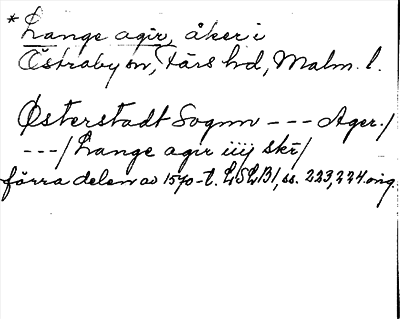 * Lange agir, åker i
Östraby sn, Färs hd, Malm. l.
Østerstadt Sognn --- Ager./
---/ Lange agir iiij skr/
förra delen av 1570-t. LSLB1, ss. 223, 224 orig.